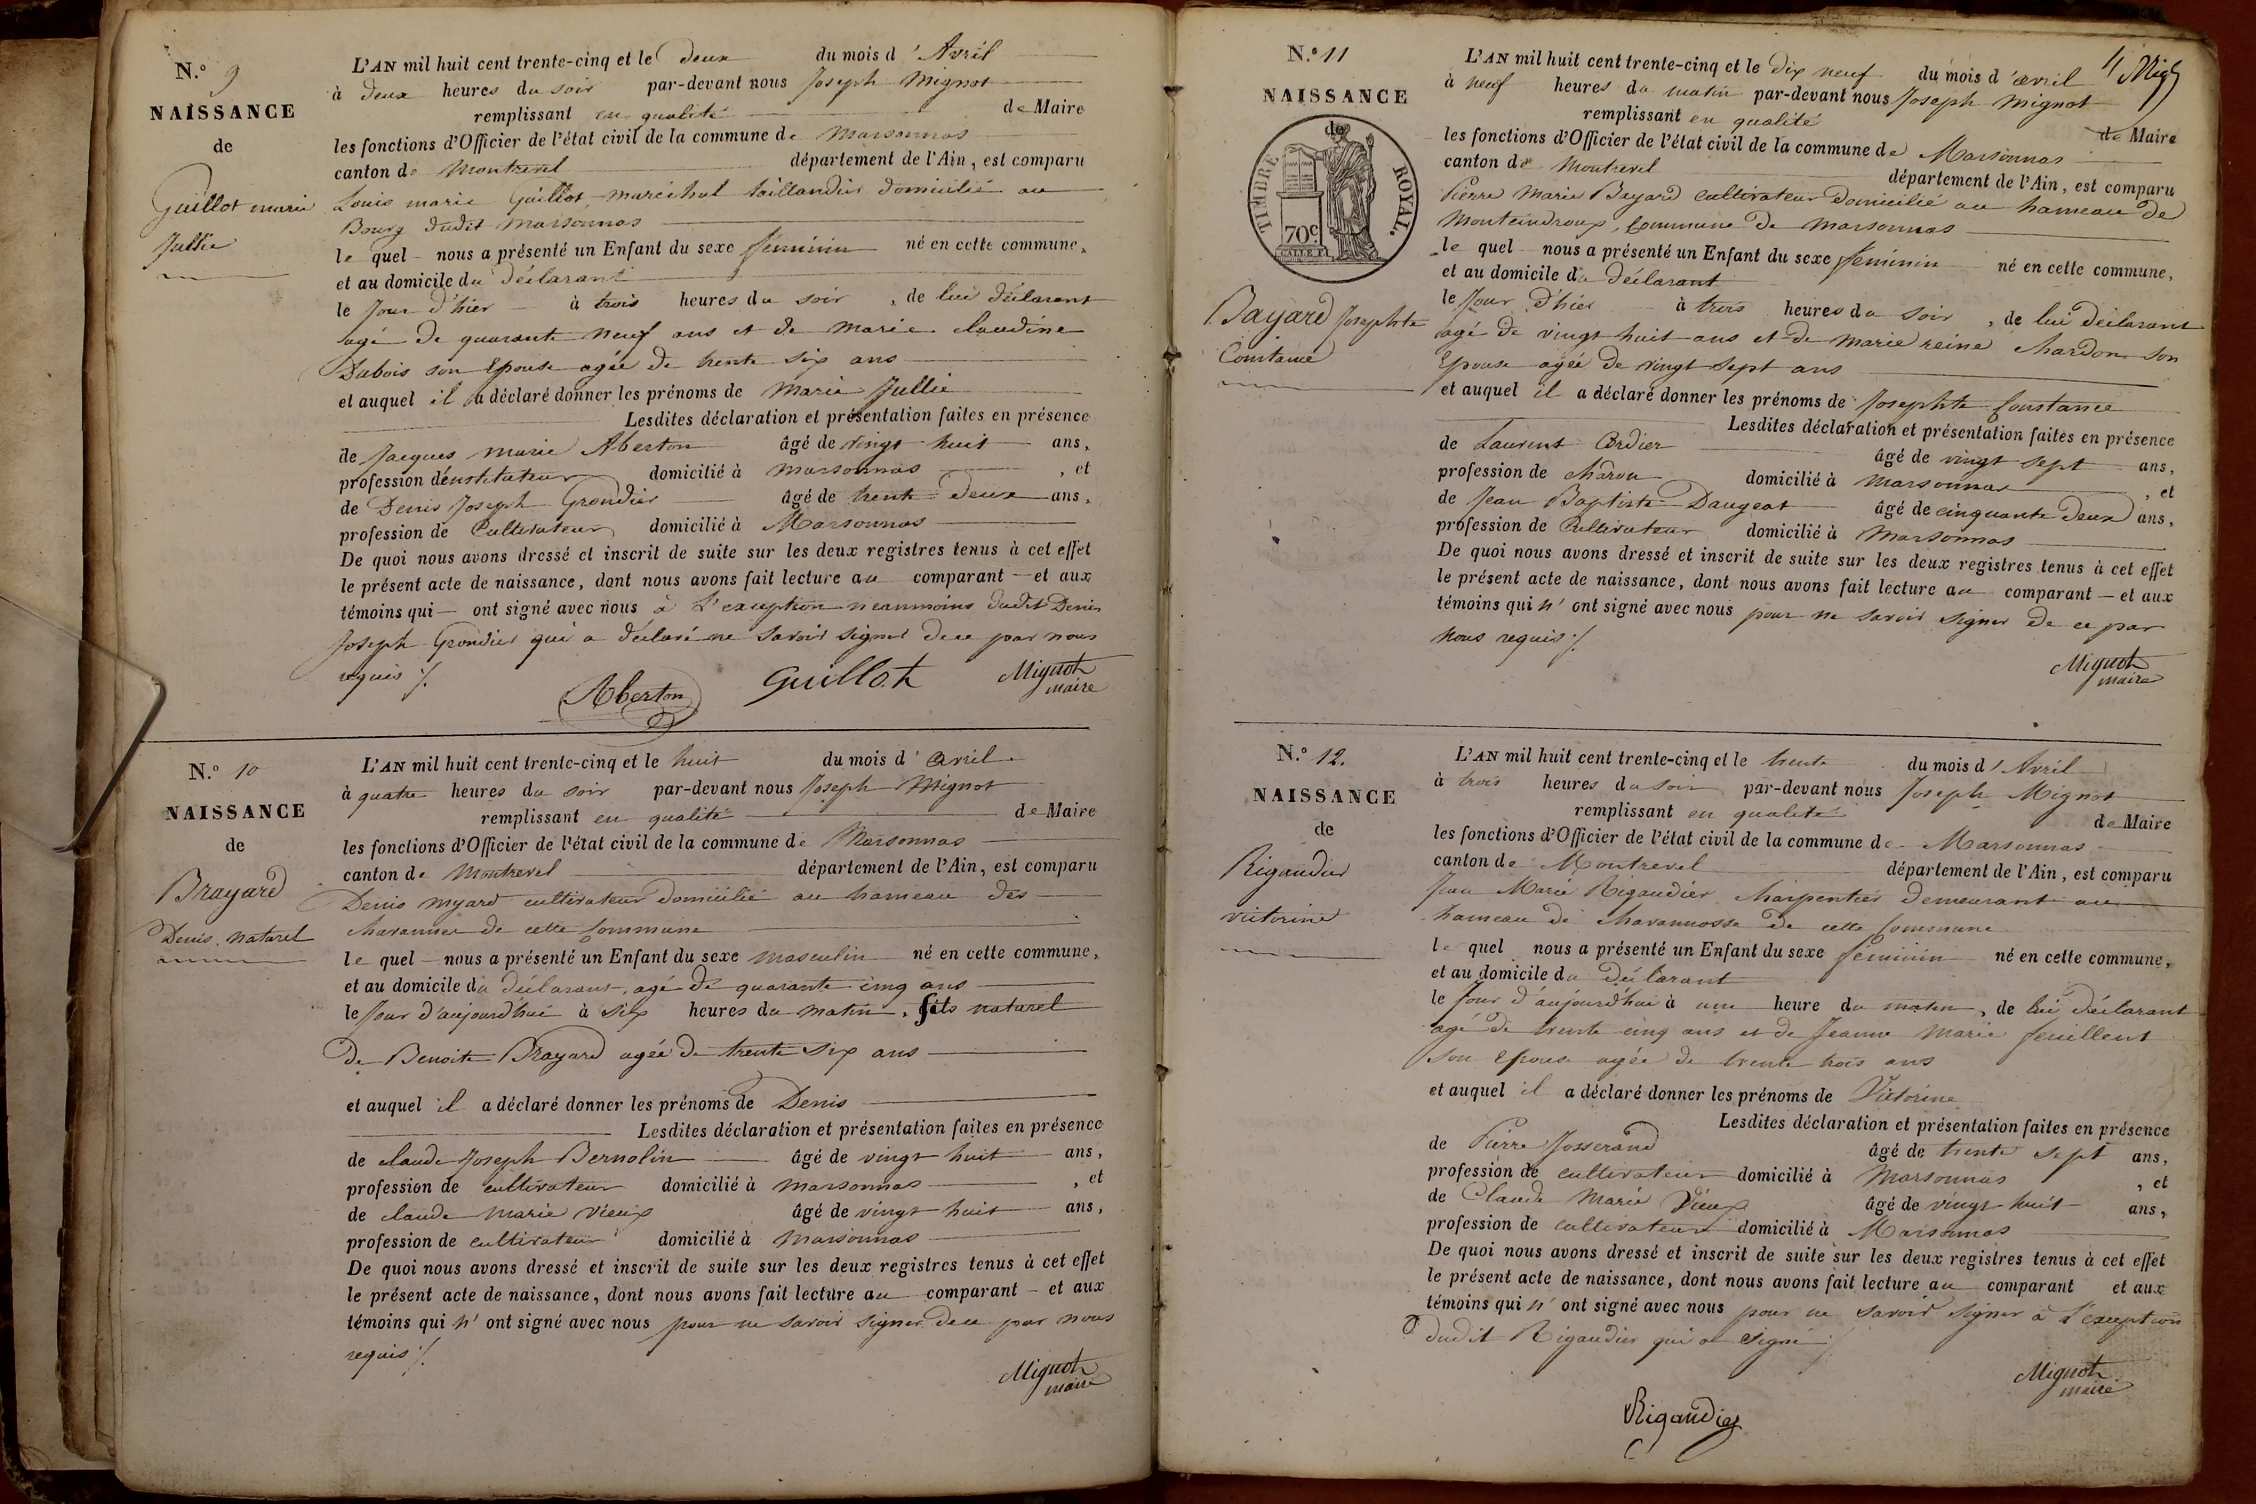 N.º 9
NAISSANCE
de
Guillot marie
Jullie
L'AN mil huit cent trente-cinq et le deux du mois d'Avril
à deux heures du soir par-devant nous Joseph Mignot
remplissant en qualité de Maire
les fonctions d'Officier de l'état civil de la commune de Marsonnas
canton de Montrevel département de l'Ain, est comparu
Louis marie Guillot, maréchal taillandier domicilié au
Bourg dudit Marsonnas
le quel nous a présenté un Enfant du sexe féminin né en cette commune,
et au domicile du déclarant
le Jour d'hier à trois heures du soir, de lui déclarant
agé de quarante neuf ans et de marie claudine
Dubois son Epouse agée de trente six ans
et auquel il a déclaré donner les prénoms de Marie Jullie
Lesdites déclaration et présentation faites en présence
de Jacques marie Aberton âgé de vingt huit ans,
profession d'énstituteur domicilié à marsonnas, et
de Denis Joseph Grondier âgé de trente deux ans,
profession de Cultivateur domicilié à Marsonnas
De quoi nous avons dressé et inscrit de suite sur les deux registres tenus à cet effet
le présent acte de naissance, dont nous avons fait lecture au comparant et aux
témoins qui ont signé avec nous à L'exception neanmoins dudit Denis
Joseph Grondier qui a déclaré ne savoir signer de ce par nous
requis ./.
Aberton Guillot Mignot
maire
N.º 10
NAISSANCE
de
Brayard
Denis. naturel
L'AN mil huit cent trente-cinq et le huit du mois d'avril
à quatre heures du soir par-devant nous Joseph Mignot
remplissant en qualité de Maire
les fonctions d'Officier de l'état civil de la commune de Marsonnas
canton de Montrevel département de l'Ain, est comparu
Denis myard cultivateur domicilié au hameau des
charannes de cette Commune
le quel nous a présenté un Enfant du sexe masculin né en cette commune,
et au domicile du déclarant, agé de quarante cinq ans
le Jour d'aujourd'hui à six heures du matin, fils naturel
de Benoite Brayard agée de trente six ans
et auquel il a déclaré donner les prénoms de Denis
Lesdites déclaration et présentation faites en présence
de claude Joseph Bernolin âgé de vingt huit ans,
profession de cultivateur domicilié à marsonnas, et
de claude marie vieux âgé de vingt huit ans,
profession de cultivateur domicilié à marsonnas
De quoi nous avons dressé et inscrit de suite sur les deux registres tenus à cet effet
le présent acte de naissance, dont nous avons fait lecture au comparant et aux
témoins qui n'ont signé avec nous pour ne savoir signer de ce par nous
requis ./.
Mignot
maire
4 Mig
N.º 11
NAISSANCE
de
TIMBRE ROYAL.
70c.
Bayard Josephte
Constance
L'AN mil huit cent trente-cinq et le dix neuf du mois d'avril
à neuf heures du matin par-devant nous Joseph Mignot
remplissant en qualité de Maire
les fonctions d'Officier de l'état civil de la commune de Marsonnas
canton de Montrevel département de l'Ain, est comparu
Pierre Marie Bayard cultivateur domicilié au hameau de
Monteindroux, Commune de Marsonnas
le quel nous a présenté un Enfant du sexe féminin né en cette commune,
et au domicile du déclarant
le Jour d'hier à trois heures du soir, de lui déclarant
agé de vingt huit ans et de marie reine chardon son
Epouse agée de vingt sept ans
et auquel il a déclaré donner les prénoms de Josephte Constance
Lesdites déclaration et présentation faites en présence
de Laurent Cordier âgé de vingt sept ans,
profession de charon domicilié à marsonnas, et
de Jean Baptiste Daugeat âgé de cinquante deux ans,
profession de Cultivateur domicilié à Marsonnas
De quoi nous avons dressé et inscrit de suite sur les deux registres tenus à cet effet
le présent acte de naissance, dont nous avons fait lecture au comparant et aux
témoins qui n'ont signé avec nous pour ne savoir signer de ce par
nous requis ./.
Mignot
maire
N.º 12.
NAISSANCE
de
Rigaudier
victorine
L'AN mil huit cent trente-cinq et le trente du mois d'Avril
à trois heures du soir par-devant nous Joseph Mignot
remplissant en qualité de Maire
les fonctions d'Officier de l'état civil de la commune de Marsonnas
canton de Montrevel département de l'Ain, est comparu
Jean Marie Rigaudier Charpentier demeurant au
hameau de Chavannosse de cette Commune
le quel nous a présenté un Enfant du sexe féminin né en cette commune,
et au domicile du déclarant
le Jour d'aujourd'hui à une heure du matin, de lui déclarant
agé de trente cinq ans et de Jeanne Marie feuillent
son Epouse agée de trente trois ans
et auquel il a déclaré donner les prénoms de Victorine
Lesdites déclaration et présentation faites en présence
de Pierre Josserand âgé de trente sept ans,
profession de cultivateur domicilié à Marsonnas, et
de Claude Marie Vieux âgé de vingt huit ans,
profession de cultivateur domicilié à Marsonnas
De quoi nous avons dressé et inscrit de suite sur les deux registres tenus à cet effet
le présent acte de naissance, dont nous avons fait lecture au comparant et aux
témoins qui n'ont signé avec nous pour ne savoir signer à l'exception
dudit Rigaudier qui a signé ./.
Mignot
maire
Rigaudier